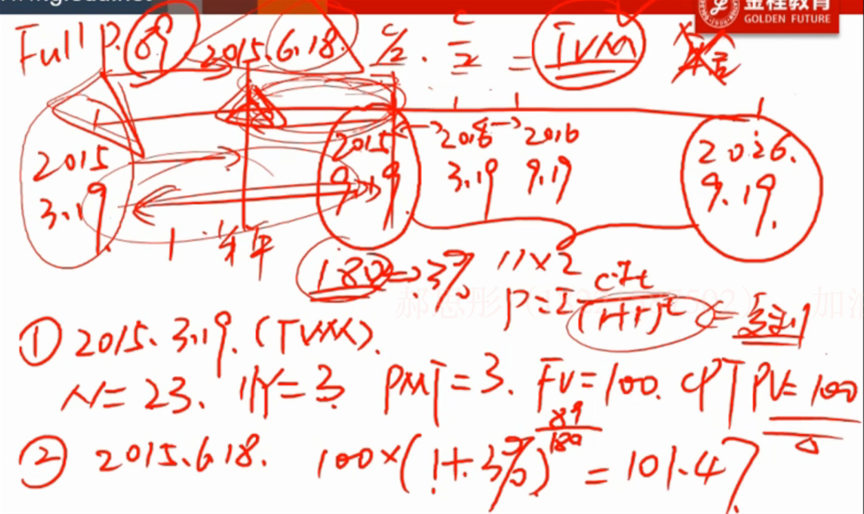 金程教育
GOLDEN FUTURE
Full P. 89 2015.6.18. c/2 · c/2 = TVM
2015 2015 2016 2016 2026.
3.19. 9.19. 3.19 9.19 9.19.
1. 半年
180 => 3% 11×2
① 2015.3.19. (TVM).
N=23. I/Y=3. PMT=3. FV=100. CPT PV=100
② 2015.6.18. 100×(1+3%)^89/180 = 101.47